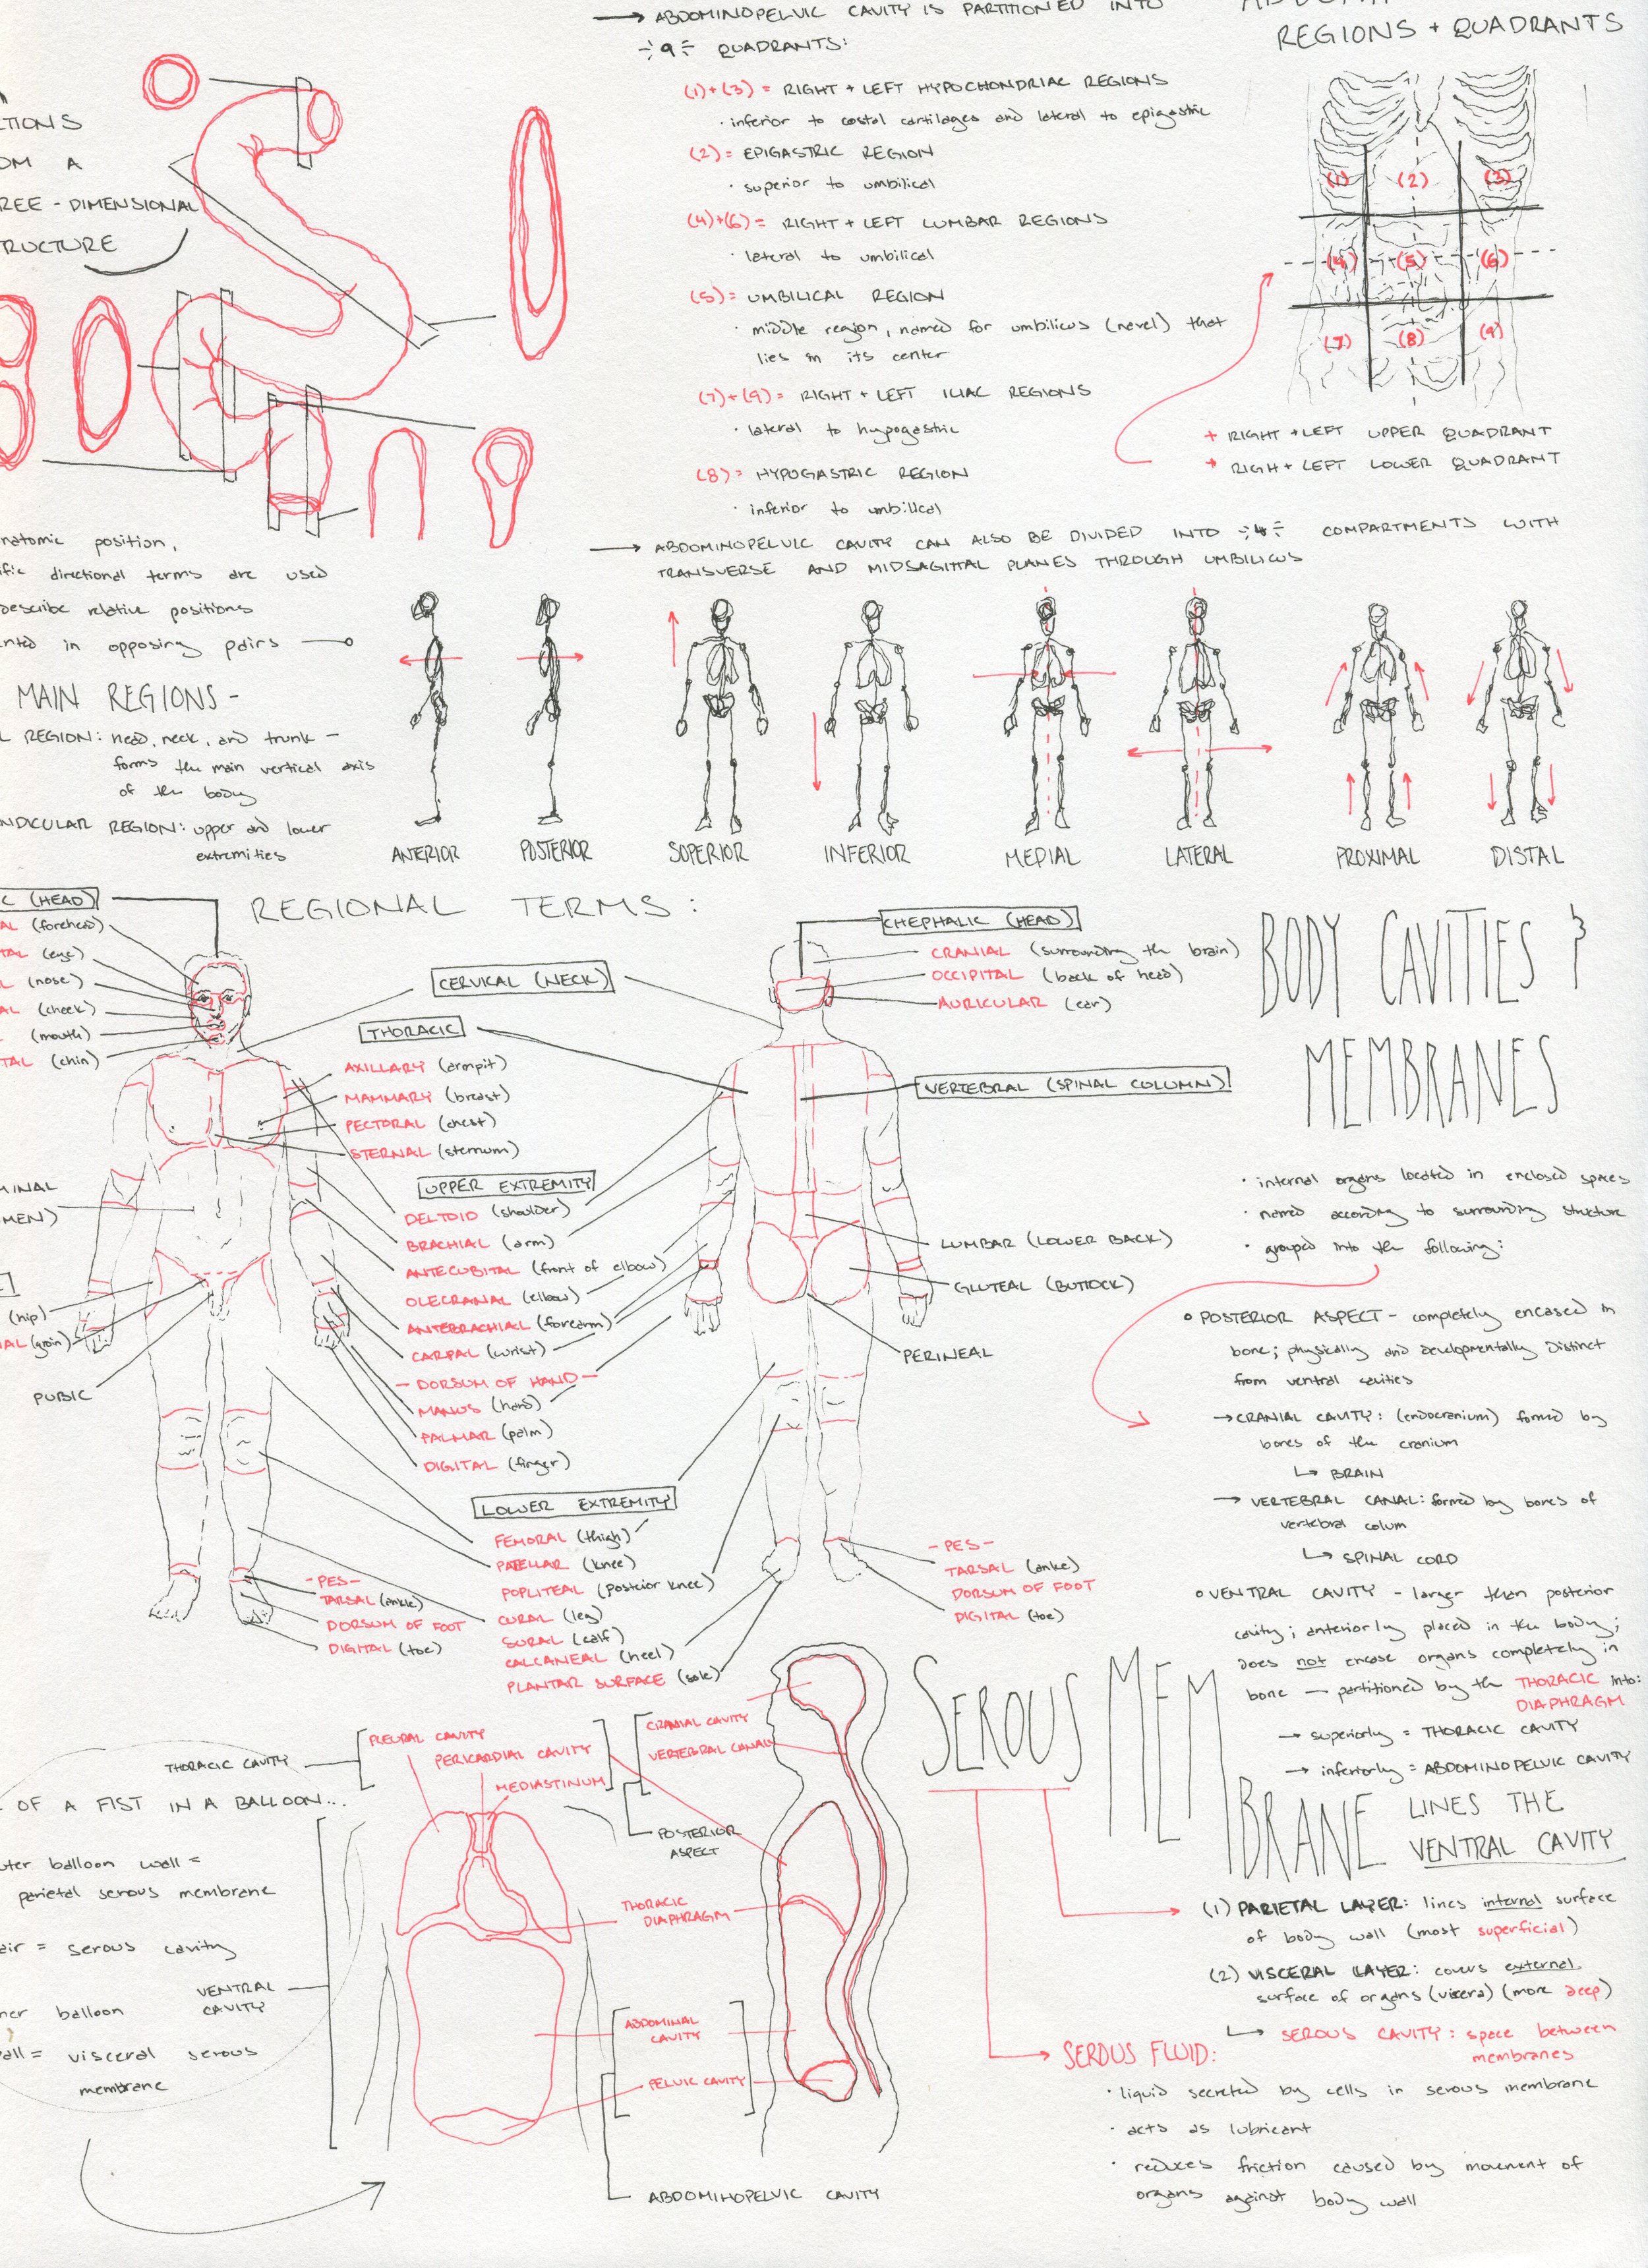 → ABDOMINOPELVIC CAVITY IS PARTITIONED INTO
÷9÷ QUADRANTS:
(1)+(3) = RIGHT + LEFT HYPOCHONDRIAC REGIONS
· inferior to costal cartilages and lateral to epigastric
(2) = EPIGASTRIC REGION
· superior to umbilical
(4)+(6) = RIGHT + LEFT LUMBAR REGIONS
· lateral to umbilical
(5) = UMBILICAL REGION
· middle region, named for umbilicus (navel) that
lies in its center
(7)+(9) = RIGHT + LEFT ILIAC REGIONS
· lateral to hypogastric
(8) = HYPOGASTRIC REGION
· inferior to umbilical
→ ABDOMINOPELVIC CAVITY CAN ALSO BE DIVIDED INTO ÷4÷ COMPARTMENTS WITH
TRANSVERSE AND MIDSAGITTAL PLANES THROUGH UMBILICUS
REGIONS + QUADRANTS
(1) (2) (3)
(4) (5) (6)
(7) (8) (9)
+ RIGHT + LEFT UPPER QUADRANT
+ RIGH + LEFT LOWER QUADRANT
TIONS
OM A
REE - DIMENSIONAL
RUCTURE
natomic position,
ific directional terms are used
describe relative positions
nted in opposing pairs
MAIN REGIONS -
L REGION: head, neck, and trunk -
forms the main vertical axis
of the body
NDICULAR REGION: upper and lower
extremities
ANTERIOR POSTERIOR SUPERIOR INFERIOR MEDIAL LATERAL PROXIMAL DISTAL
REGIONAL TERMS:
C (HEAD)
AL (forehead)
TAL (eye)
L (nose)
AL (cheek)
(mouth)
TAL (chin)
MINAL
MEN)
(hip)
AL (groin)
PUBIC
CERVICAL (NECK)
THORACIC
AXILLARY (armpit)
MAMMARY (breast)
PECTORAL (chest)
STERNAL (sternum)
UPPER EXTREMITY
DELTOID (shoulder)
BRACHIAL (arm)
ANTECUBITAL (front of elbow)
OLECRANAL (elbow)
ANTEBRACHIAL (forearm)
CARPAL (wrist)
- DORSUM OF HAND -
MANUS (hand)
PALMAR (palm)
DIGITAL (finger)
LOWER EXTREMITY
FEMORAL (thigh)
PATELLAR (knee)
POPLITEAL (posterior knee)
CURAL (leg)
SURAL (calf)
CALCANEAL (heel)
PLANTAR SURFACE (sole)
- PES -
TARSAL (ankle)
DORSUM OF FOOT
DIGITAL (toe)
CHEPHALIC (HEAD)
CRANIAL (surrounding the brain)
OCCIPITAL (back of head)
AURICULAR (ear)
VERTEBRAL (SPINAL COLUMN)
LUMBAR (LOWER BACK)
GLUTEAL (BUTTOCK)
PERINEAL
- PES -
TARSAL (ankle)
DORSUM OF FOOT
DIGITAL (toe)
BODY CAVITIES &
MEMBRANES
· internal organs located in enclosed spaces
· named according to surrounding structure
· grouped into the following:
o POSTERIOR ASPECT - completely encased in
bone; physically and developmentally distinct
from ventral cavities
→ CRANIAL CAVITY: (endocranium) formed by
bones of the cranium
↳ BRAIN
→ VERTEBRAL CANAL: formed by bones of
vertebral colum
↳ SPINAL CORD
o VENTRAL CAVITY - larger than posterior
cavity; anteriorly placed in the body;
does not encase organs completely in
bone - partitioned by the THORACIC into:
DIAPHRAGM
→ superiorly = THORACIC CAVITY
→ inferiorly = ABDOMINOPELVIC CAVITY
SEROUS MEMBRANE LINES THE
VENTRAL CAVITY
(1) PARIETAL LAYER: lines internal surface
of body wall (most superficial)
(2) VISCERAL LAYER: covers external
surface of organs (viscera) (more deep)
↳ SEROUS CAVITY: space between
membranes
SEROUS FLUID:
· liquid secreted by cells in serous membrane
· acts as lubricant
· reduces friction caused by movement of
organs against body wall
THORACIC CAVITY
PLEURAL CAVITY
PERICARDIAL CAVITY
MEDIASTINUM
CRANIAL CAVITY
VERTEBRAL CANAL
POSTERIOR
ASPECT
THORACIC
DIAPHRAGM
VENTRAL
CAVITY
ABDOMINAL
CAVITY
PELVIC CAVITY
ABDOMINOPELVIC CAVITY
OF A FIST IN A BALLOON...
uter balloon wall =
parietal serous membrane
air = serous cavity
ner balloon
all = visceral serous
membrane